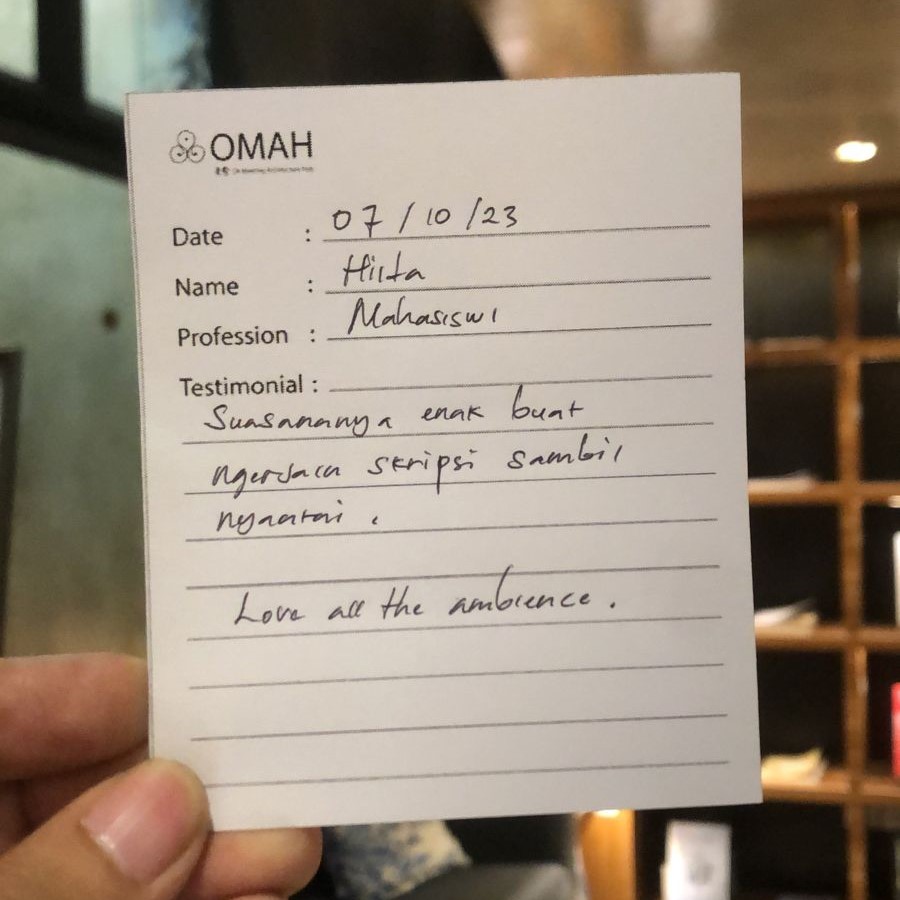 OMAH
Date : 07/10/23
Name : Hilda
Profession : Mahasiswi
Testimonial :
Suasananya enak buat
ngerjain skripsi sambil
nyantai.
Love all the ambience.